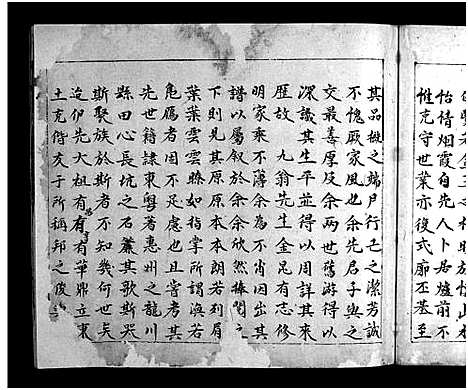 怡情烟霞自先人卜居爐前不
惟克守世業亦復式廓丕基至
其品概之端月行己之潔芳誠
不愧厥家風也余先君子與之
交最善厚及余兩世舊游得以
深識其生平並得以周詳其來
歷故 九翁先生金昆有志修
明家乘不薄余為不肖因出其
譜以屬敘於余余欣然捧閱之
下則見其原原本本朗若列眉
葉葉雲雲瞭如指掌所謂渙若
先世籍隸東粵著惠州之龍川
縣田心長坑之石 其歌斯哭
斯聚族於斯者不知幾何世矣
迨伊先大祖有 有 有華鼎立東
土克偕友于所稱邦之